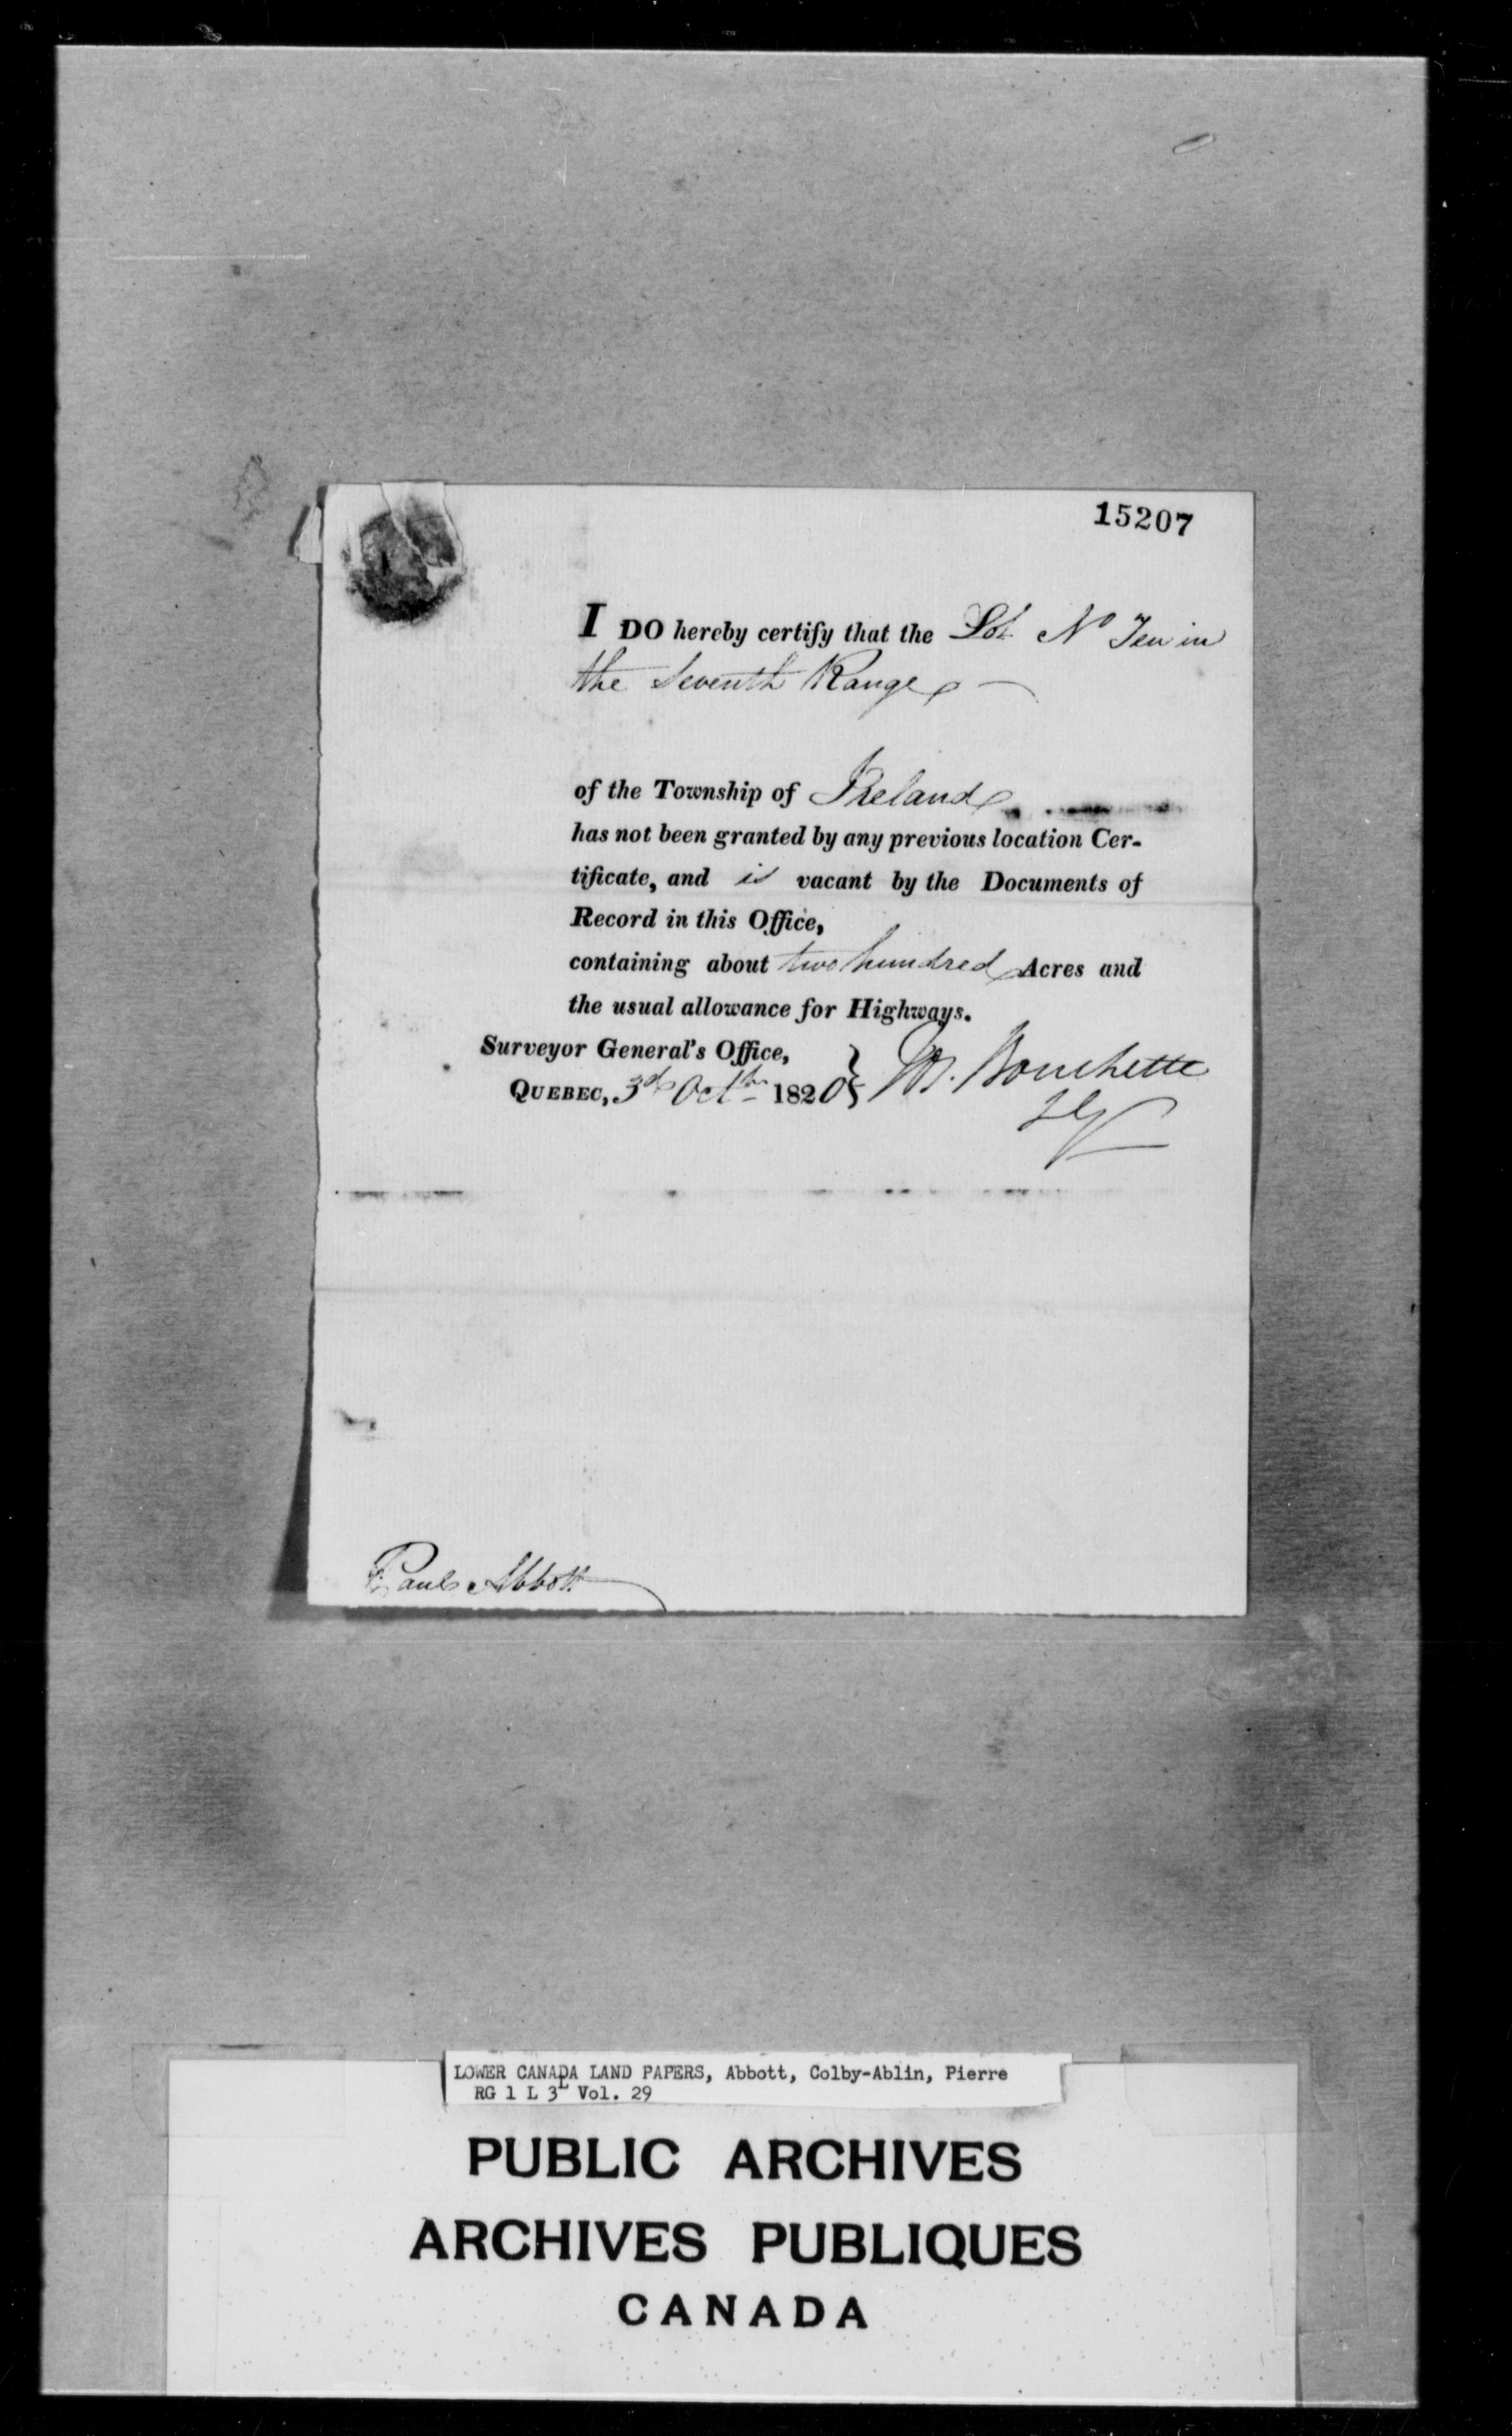 15207
I DO hereby certify that the Lot No Ten in
the Seventh Range
of the Township of Ireland
has not been granted by any previous location Cer-
tificate, and is vacant by the Documents of
Record in this Office,
containing about two hundred Acres and
the usual allowance for Highways.
Surveyor General's Office,
QUEBEC, 3d Octbr 1820 } Jos. Bouchette
SG
Paul Abbott
LOWER CANADA LAND PAPERS, Abbott, Colby-Ablin, Pierre
RG 1 L 3L Vol. 29
PUBLIC ARCHIVES
ARCHIVES PUBLIQUES
CANADA